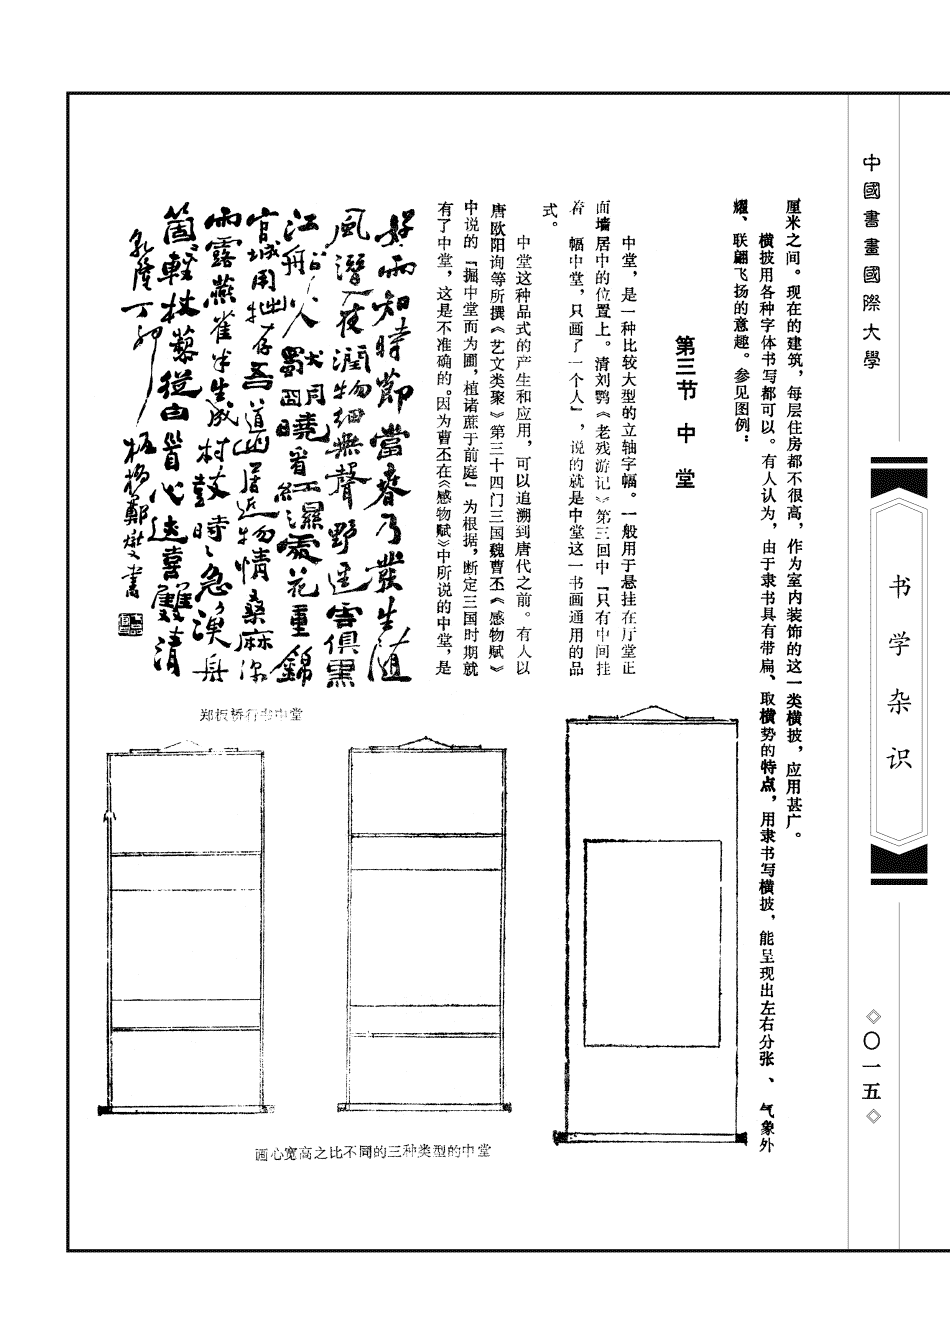 中國書畫國際大學
书学杂识
◇〇一五◇
厘米之间。现在的建筑，每层住房都不很高，作为室内装饰的这一类横披，应用甚广。
横披用各种字体书写都可以。有人认为，由于隶书具有带扁、取横势的特点，用隶书写横披，能呈现出左右分张、气象外
耀、联翩飞扬的意趣。参见图例：
第三节 中 堂
中堂，是一种比较大型的立轴字幅。一般用于悬挂在厅堂正
面墙居中的位置上。清刘鹗《老残游记》第三回中『只有中间挂
着 幅中堂，只画了一个人』，说的就是中堂这一书画通用的品
式。
中堂这种品式的产生和应用，可以追溯到唐代之前。有人以
唐欧阳询等所撰《艺文类聚》第三十四门三国魏曹丕《感物赋》
中说的『掘中堂而为圃，植诸蔗于前庭』为根据，断定三国时期就
有了中堂，这是不准确的。因为曹丕在《感物赋》中所说的中堂，是
好雨知時節當春乃發生随
風潛夜潤物細無聲野徑雲俱黑
江船火獨明曉看红濕處花重錦
官城用拙存吾道幽居近物情桑麻深
雨露燕雀半生成村鼓時時急漁舟
箇箇輕杖藜從白首心迹喜雙清
乾隆 板橋鄭燮書
郑板桥行书中堂
画心宽高之比不同的三种类型的中堂